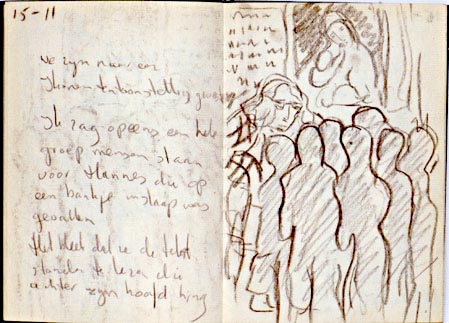 15-11
we zijn naar een
tentoonstelling geweest
Ik zag opeens een hele
groep mensen staan
voor Hannes die op
een bankje in slaap was
gevallen
Het bleek dat ze de tekst
stonden te lezen die
achter zijn hoofd hing